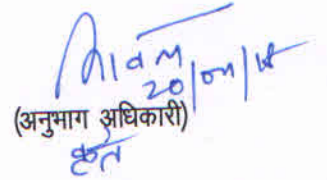 20/04/18
(अनुभाग अधिकारी)
कृते